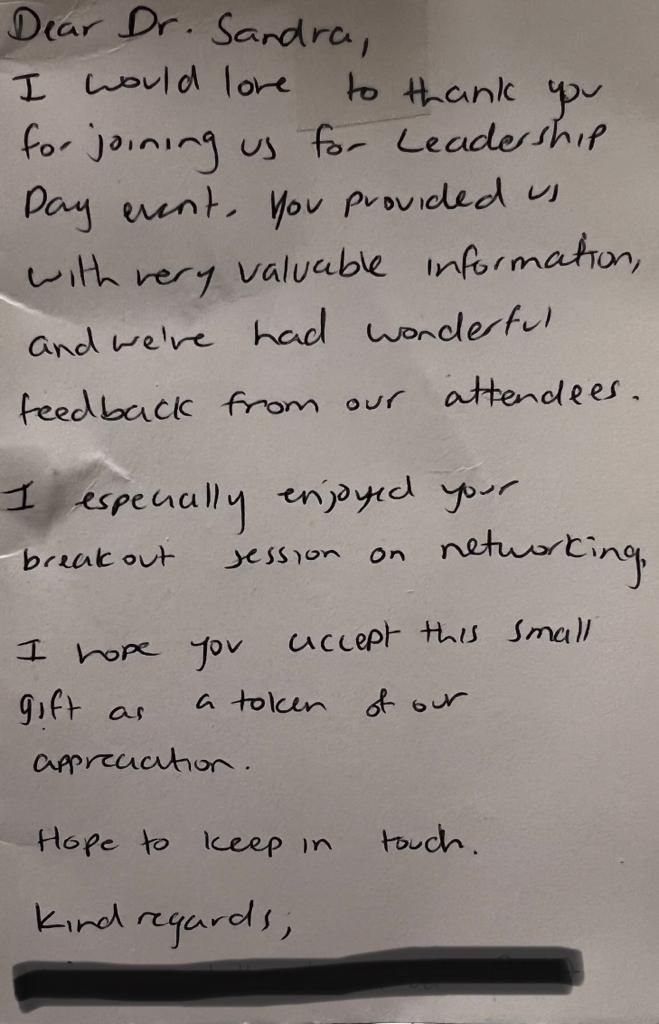 Dear Dr. Sandra,
I would love to thank you
for joining us for Leadership
Day event. You provided us
with very valuable information,
and we've had wonderful
feedback from our attendees.
I especially enjoyed your
breakout session on networking,
I hope you accept this small
gift as a token of our
appreciation.
Hope to keep in touch.
Kind regards,